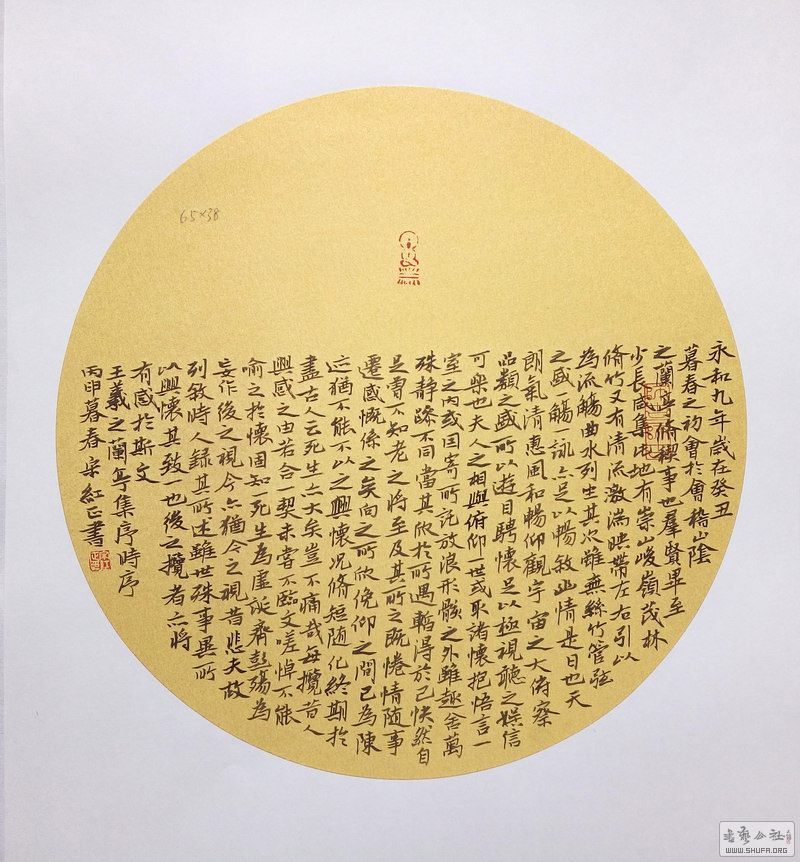 永和九年歲在癸丑
暮春之初會於會稽山陰
之蘭亭脩禊事也羣賢畢至
少長咸集此地有崇山峻嶺茂林
脩竹又有清流激湍映帶左右引以
為流觴曲水列坐其次雖無絲竹管弦
之盛一觴一詠亦足以暢敘幽情是日也天
朗氣清惠風和暢仰觀宇宙之大俯察
品類之盛所以遊目騁懷足以極視聽之娛信
可樂也夫人之相與俯仰一世或取諸懷抱悟言一
室之內或因寄所託放浪形骸之外雖趣舍萬
殊靜躁不同當其欣於所遇暫得於己快然自
足曾不知老之將至及其所之既惓情隨事
遷感慨係之矣向之所欣俛仰之間已為陳
迹猶不能不以之興懷況脩短隨化終期於
盡古人云死生亦大矣豈不痛哉每攬昔人
興感之由若合一契未嘗不臨文嗟悼不能
喻之於懷固知一死生為虛誕齊彭殤為
妄作後之視今亦猶今之視昔悲夫故
列敘時人錄其所述雖世殊事異所
以興懷其致一也後之攬者亦將
有感於斯文
王羲之蘭亭集序時序
丙申暮春宋紅正書
65×38
書藝公社
WWW.SHUFA.ORG